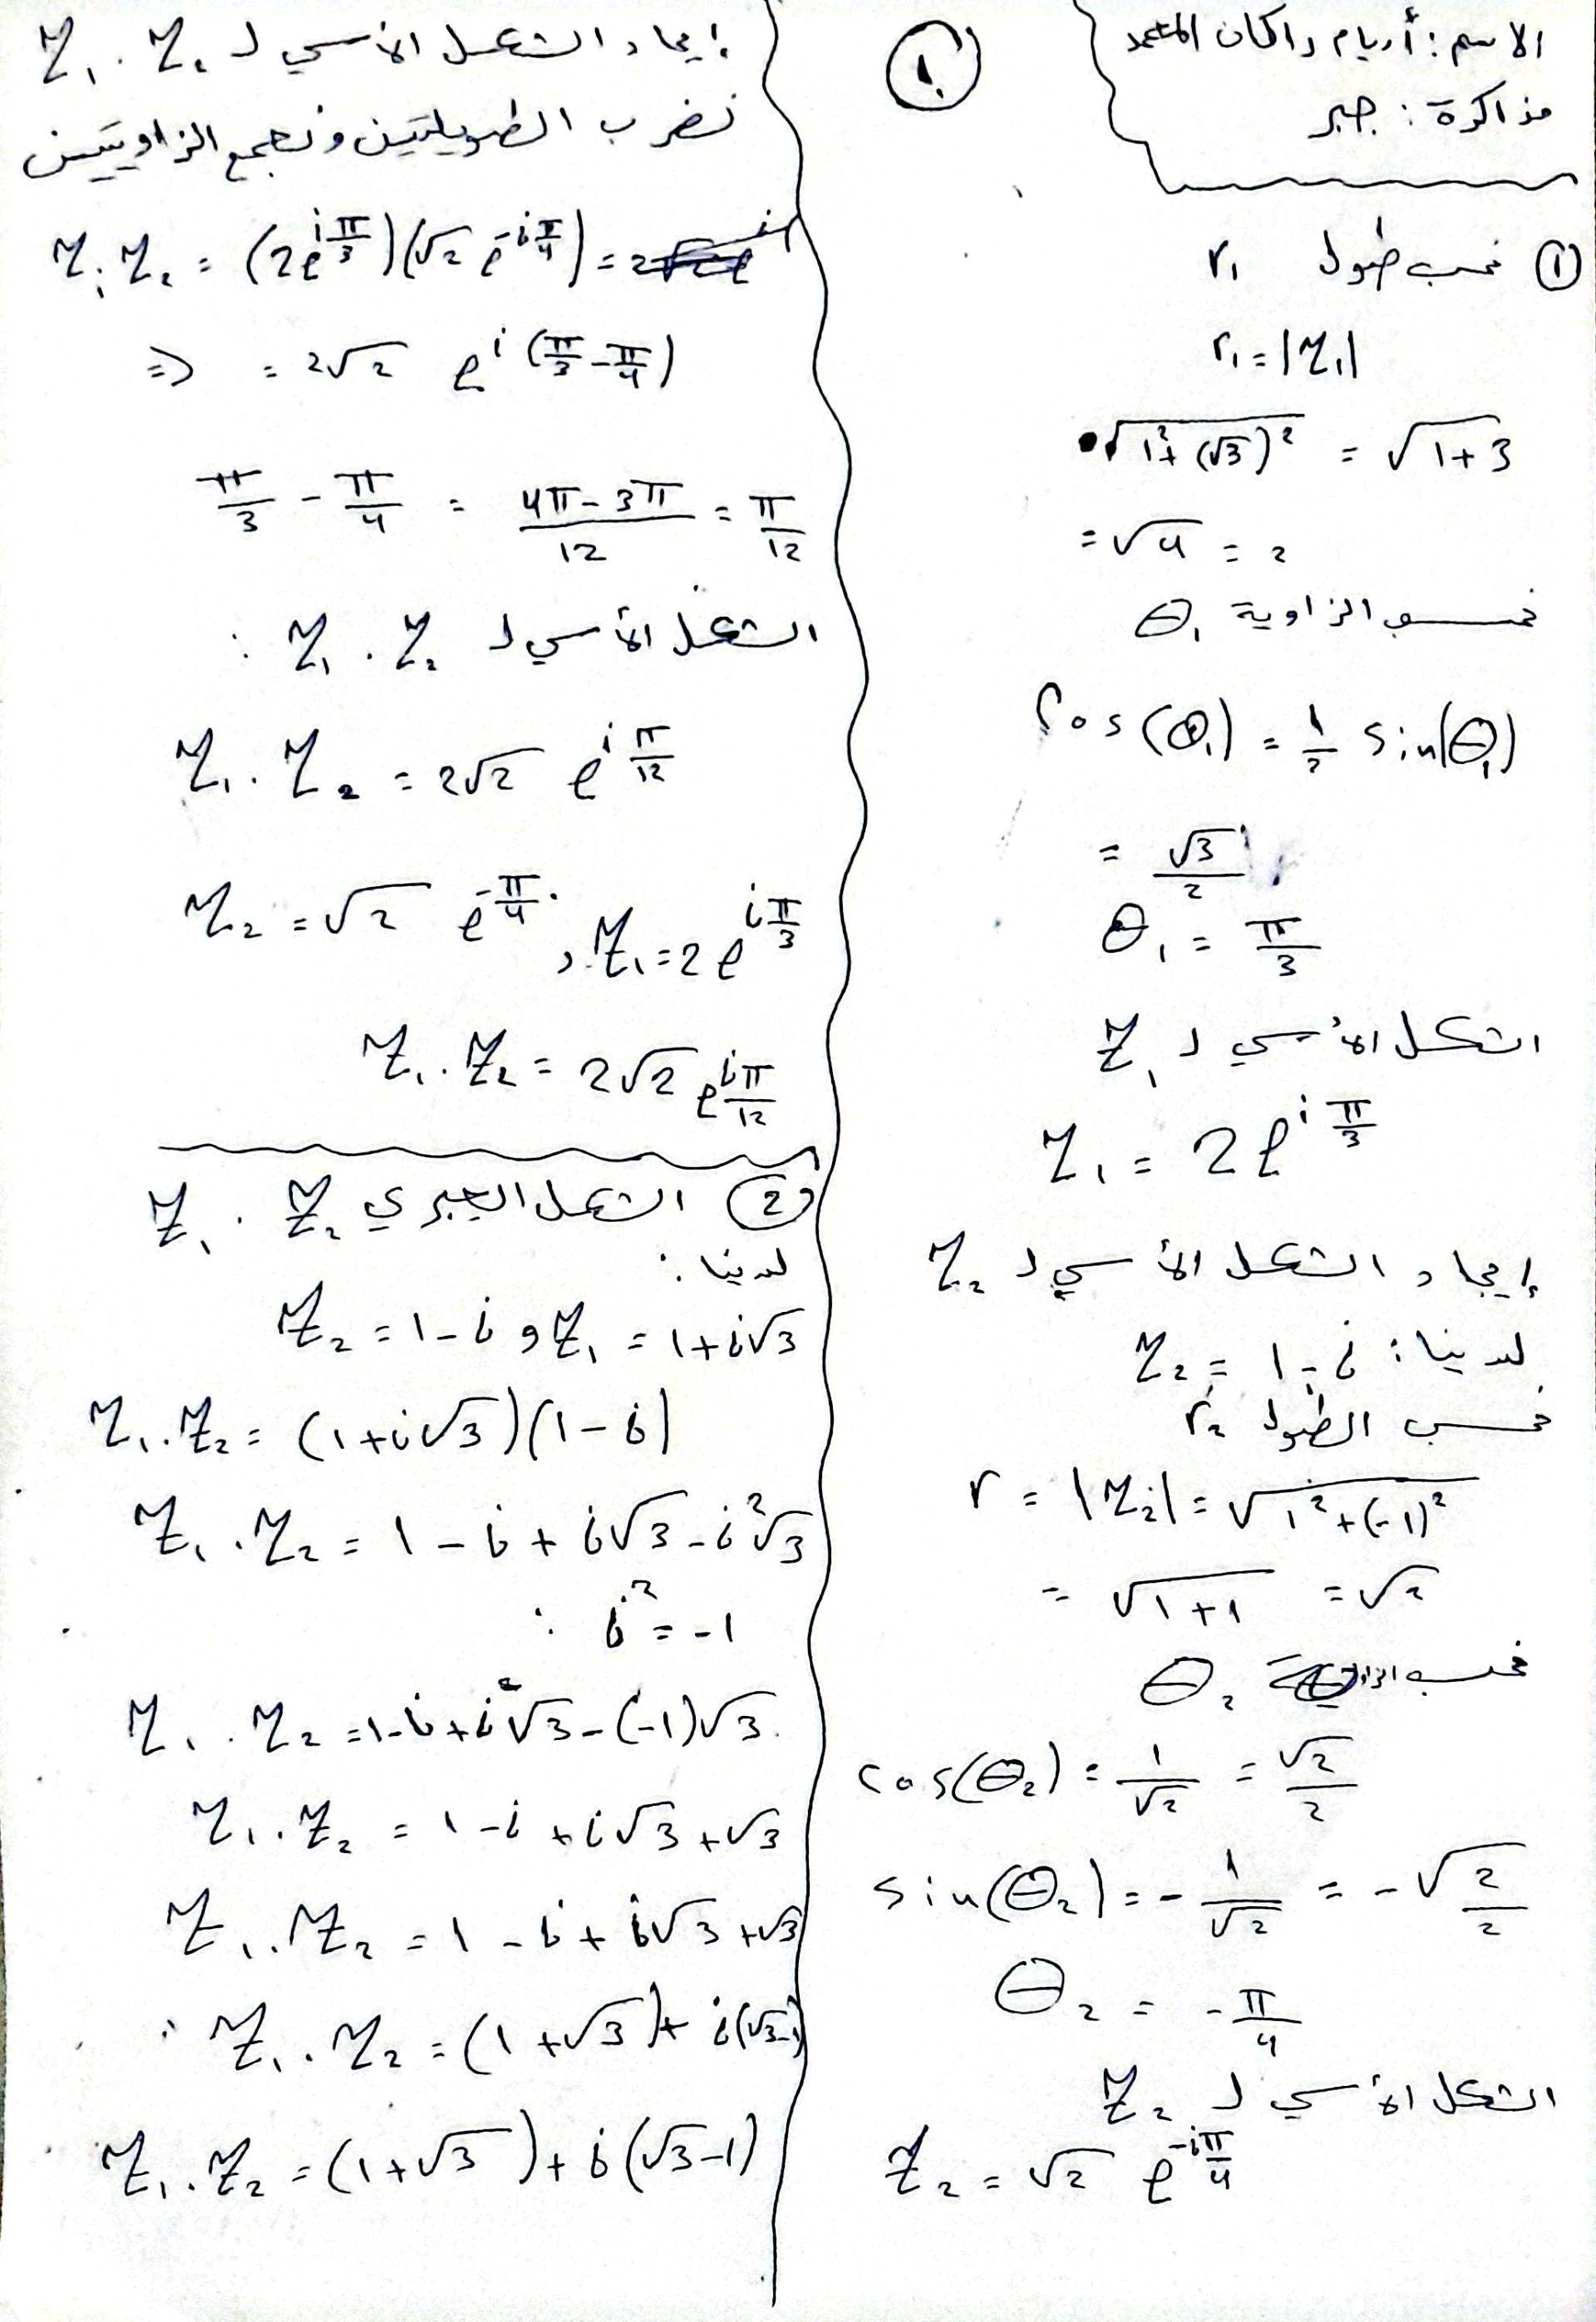 الاسم : أريام داكان المعمد
مذاكرة : جبر
١
① نحسب طول r₁
r₁ = |Z₁|
√(1² + (√3)²) = √(1+3)
= √4 = 2
نحسب الزاوية θ₁
cos(θ₁) = 1/2 sin(θ₁)
= √3/2
θ₁ = π/3
الشكل الأسي لـ Z₁
Z₁ = 2e^(i π/3)
إيجاد الشكل الأسي لـ Z₂
لدينا : Z₂ = 1 - i
نحسب الطول r₂
r = |Z₂| = √(1² + (-1)²)
= √(1+1) = √2
نحسب الزاوية θ₂
cos(θ₂) = 1/√2 = √2/2
sin(θ₂) = - 1/√2 = - √2/2
θ₂ = - π/4
الشكل الأسي لـ Z₂
Z₂ = √2 e^(-i π/4)
إيجاد الشكل الأسي لـ Z₁ . Z₂
نضرب الطويلتين ونجمع الزاويتين
Z₁ . Z₂ = (2e^(i π/3))(√2 e^(-i π/4)) =
=> = 2√2 e^(i (π/3 - π/4))
π/3 - π/4 = (4π - 3π)/12 = π/12
الشكل الأسي لـ Z₁ . Z₂ :
Z₁ . Z₂ = 2√2 e^(i π/12)
Z₂ = √2 e^(-π/4) , Z₁ = 2e^(i π/3)
Z₁ . Z₂ = 2√2 e^(i π/12)
② الشكل الجبري Z₁ . Z₂
لدينا :
Z₂ = 1 - i و Z₁ = 1 + i√3
Z₁ . Z₂ = (1 + i√3)(1 - i)
Z₁ . Z₂ = 1 - i + i√3 - i²√3
: i² = -1
Z₁ . Z₂ = 1 - i + i√3 - (-1)√3
Z₁ . Z₂ = 1 - i + i√3 + √3
Z₁ . Z₂ = 1 - i + i√3 + √3
Z₁ . Z₂ = (1 + √3) + i(√3-1)
Z₁ . Z₂ = (1 + √3) + i(√3-1)